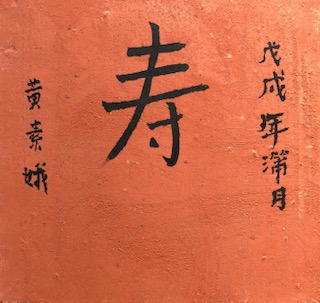 戊戌年满月
寿
黄素娥